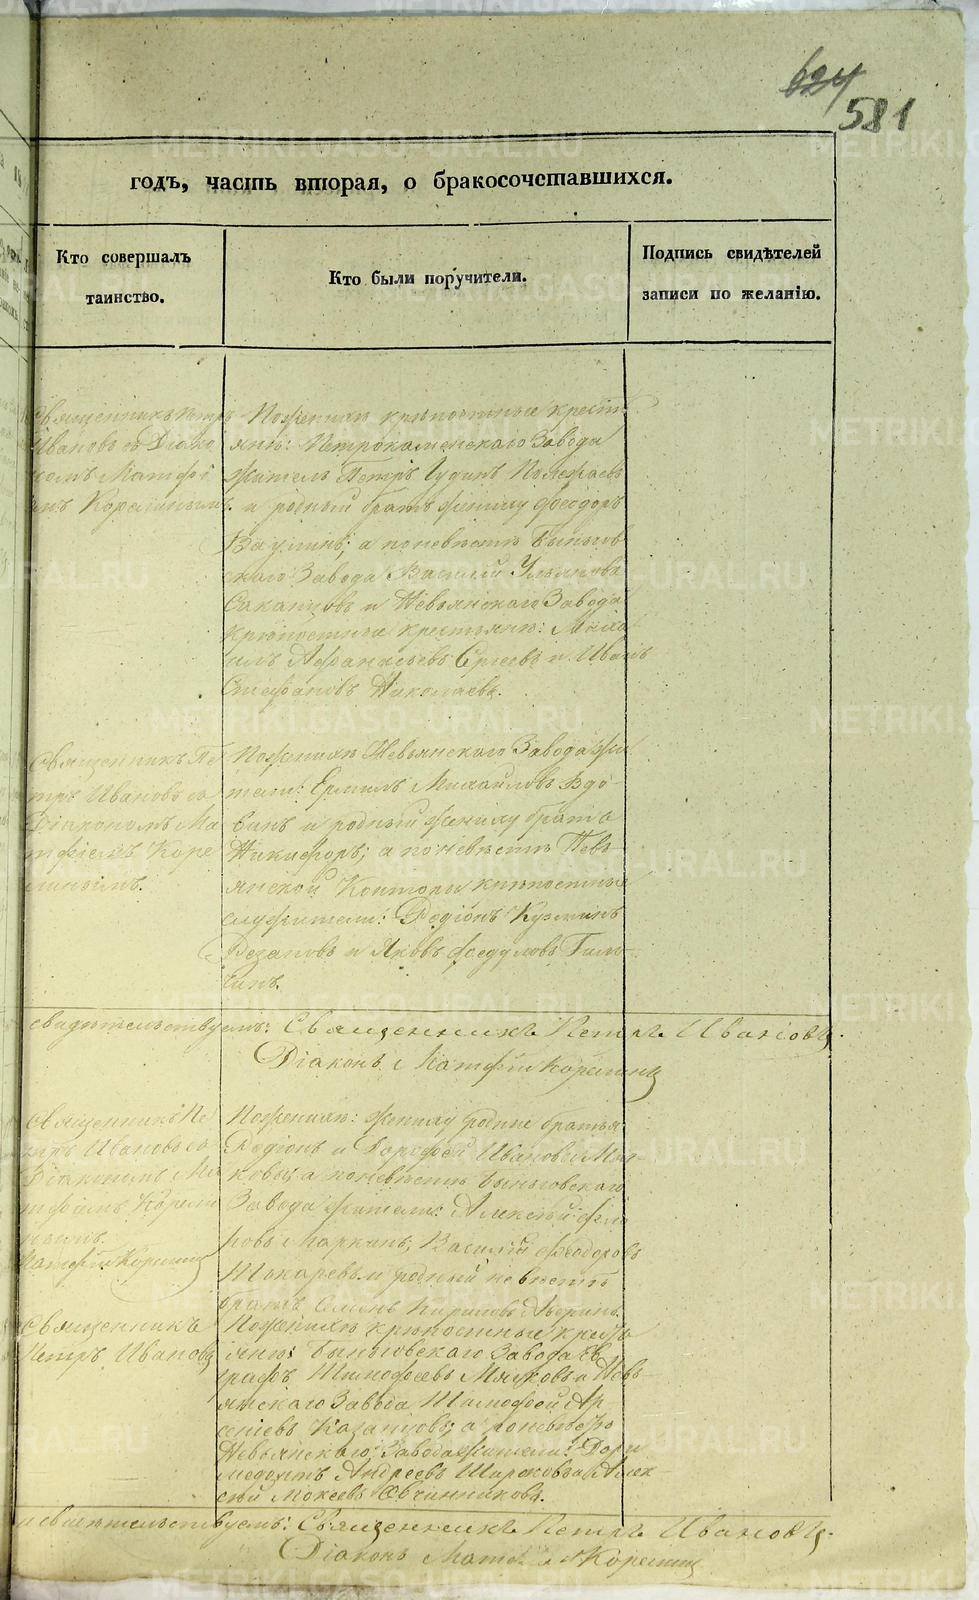 624
581
годъ, часть вторая, о бракосочетавшихся.
Кто совершалъ
таинство.
Кто были поручители.
Подпись свидѣтелей
записи по желанію.
Священникъ Петръ
Ивановъ съ Діако
номъ Матфі
емъ Корелинымъ.
По женихѣ крѣпостные крестъ
яне: Петрокаменскаго Завода
житель Петръ
и родный братъ жениху Феодоръ
Ваулинъ; а по невѣстѣ Быньгов
скаго Завода Василій Ульяновъ
и Невьянскаго Завода
крѣпостные крестьяне: Миха
илъ Афанасьевъ Сергѣевъ и Иванъ
Стефановъ Николаевъ.
Священникъ Пе
тръ Ивановъ со
Діакономъ Ма
тфіемъ Коре
линымъ.
По женихѣ Невьянскаго Завода жи
тели: Ермилъ Михайловъ Вдо-
винъ и родный жениху братъ
Никифоръ; а по невѣстѣ Невь-
янской Конторы крѣпостные
служители: Родіонъ Кузминъ
Резановъ и Яковъ Федуловъ
свидѣтельствуемъ: Священникъ Петръ Ивановъ.
Діаконъ Матфій Корелинъ
Священникъ Пе
тръ Ивановъ со
Діакономъ Ма
тфіемъ Корели
нымъ.
Матфій Корелинъ
По женихѣ: жениху родные братья
Родіонъ и Дорофей Ивановы Мяг-
ковы, а по невѣстѣ Быньговскаго
Завода жители: Алексѣй Федо
ровъ Маркинъ, Василій Феодоровъ
Токаревъ и родный невѣстѣ
братъ Семенъ Кириловъ
Священникъ
Петръ Ивановъ
По женихѣ крѣпостные кресть
яне: Быньговскаго Завода Ев
графъ Тимофеевъ Мягковъ и Невь-
янскаго Завода Тимофей Ар
сеніевъ Казанцовъ; а по невѣстѣ
Невьянскаго Завода жители: Дори
медонтъ Андреевъ Шираковъ и Алек-
сѣй Мокеевъ Овчинниковъ.
свидѣтельствуемъ: Священникъ Петръ Ивановъ.
Діаконъ Матфій Корелинъ
METRIKI.GASO-URAL.RU